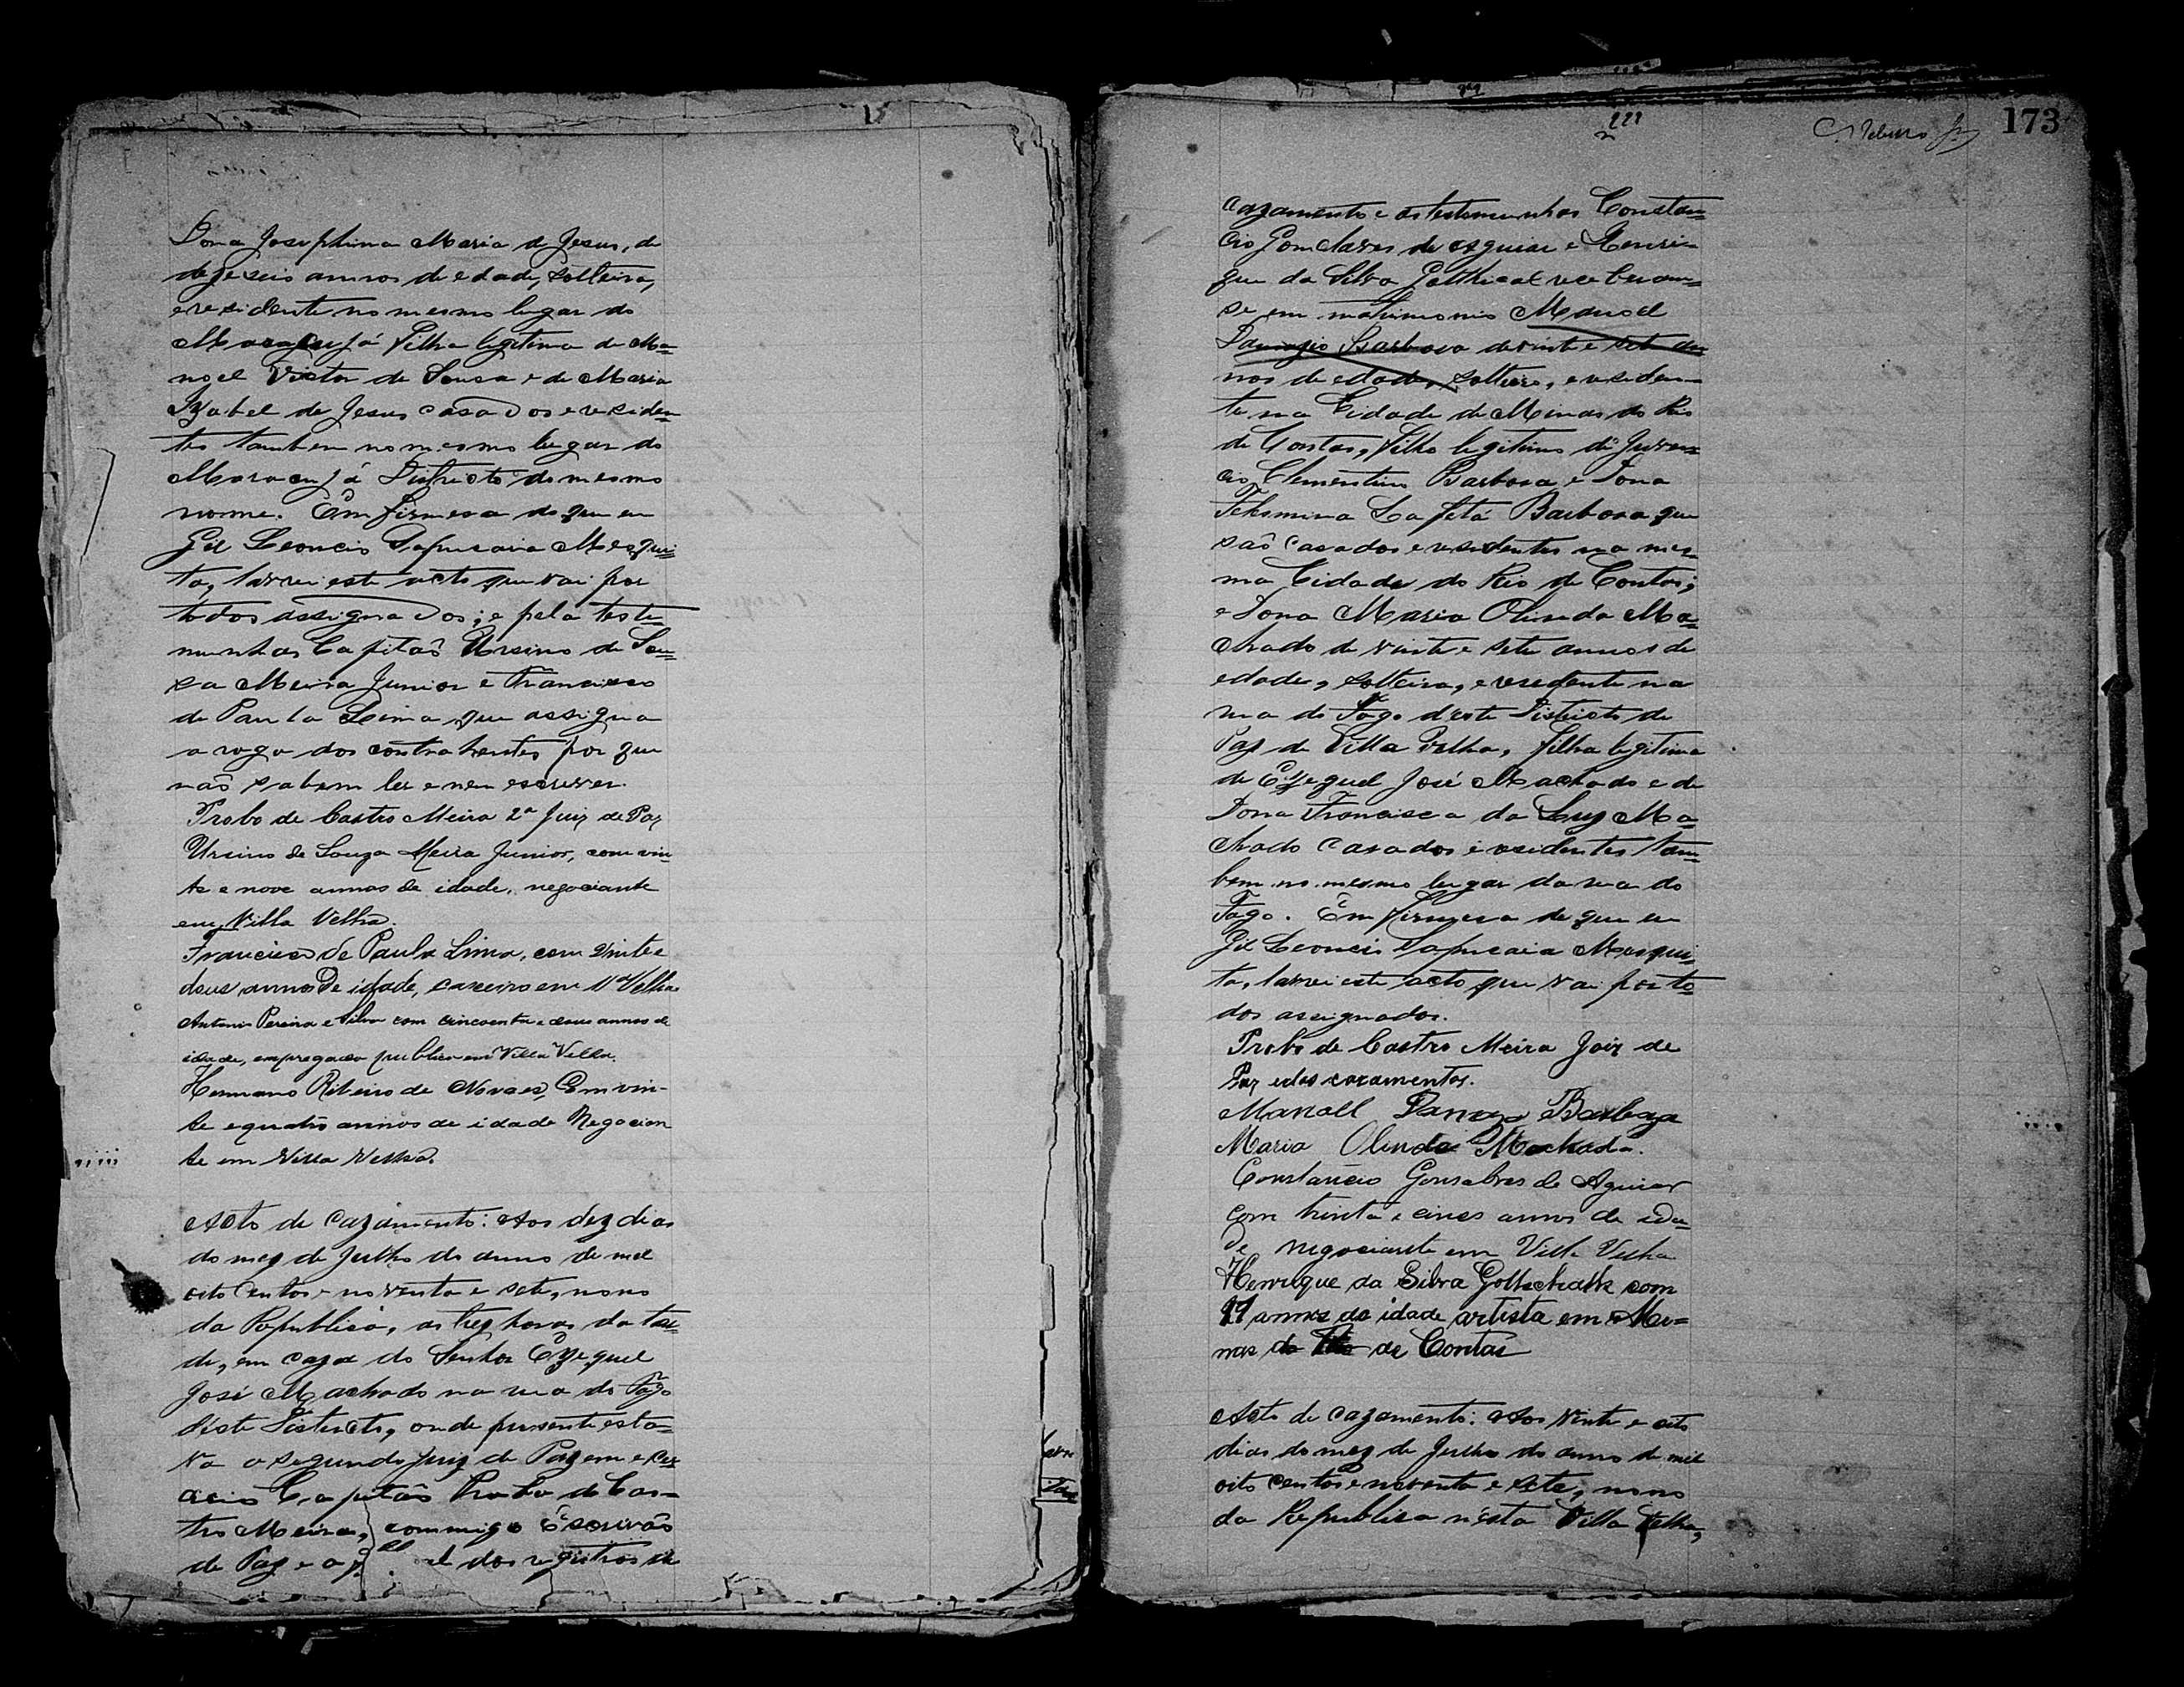 Dona Josephina Maria de Jesus, de
dezeseis annos de edade, solteira,
e residente no mesmo lugar do
Maracujá filha legitima de Ma=
noel Victor de Sousa e de Maria
Izabel de Jesus casados e residen=
tes tambem no mesmo lugar do
Maracujá Districto do mesmo
nome. Em firmesa do que eu
Gil Leoncio Sapucaia Mesqui=
ta, lavrei este acto que vai por
todos assignados; e pela teste=
munhas Capitaõ Ursino de Sou=
sa Meira Junior e Francisco
de Paula Lima que assigna
a rogo dos contrahentes por que
naõ sabem ler e nem escrever.
Probo de Castro Meira 2º Juiz de Paz
Ursino de Souza Meira Junior, com vin=
te e nove annos de idade, negociante
em Villa Velha.
Francisco de Paula Lima, com vinte e
dous annos de idade, caixeiro em Va Velha
Antonio Pereira e Silva com cincoenta e dous annos de
idade, empregado publico em Villa Velha.
Hermano Ribeiro de Novaes, Com vin-
te e quatro annos de idade Negocian
te em Villa Velha.
Acto de Cazamento: Aos dez dias
do mez de Julho do anno de mil
oito Centos e noventa e sete, nono
da Republica, as trez horas da tar=
de, em caza do Senhor Ezequel
José Machado na rua do Fogo
déste Districto, onde presente esta=
va o segundo Juiz de Paz em exer=
cicio Capitaõ Probo de Cas=
tro Meira, commigo Escrivaõ
de Paz e dos registros de
173
cazamento e as testemunhas Constan=
cio Gonclaves de Aguiar e Henri=
que da Silva receberam=
se em matrimonio Manoel
Damazio Barbosa de vinte e sete an=
nos de edade, solteiro, e residen=
te na Cidade de Minas do Rio
de Contas, filho legitimo de Juven=
cio Clementino Barbosa e Dona
Barbosa que
saõ casados e residentes na mes=
ma Cidade do Rio de Contas;
e Dona Maria Olinda Ma=
chado de vinte e sete annos de
edade, solteira, e resedente na
rua do Fogo d'este Districto de
Paz de Villa Velha, filha legitima
de Ezequel José Machado e de
Dona Francisca da Luz Ma=
chado casados e residentes tam=
bem no mesmo lugar da rua do
Fogo. Em firmesa de que eu
Gil Leoncio Sapucaia Mesqui=
ta, lavrei este acto que vai por to=
dos assignados.
Probo de Castro Meira Joiz de
Paz e dos casamentos.
Manoel Barboza
Maria Olinda Machado.
Constancio Gonsalves de Aguiar
com trinta e cinco annos de ida=
de negociante em Villa Velha
Henrique da Silva Gottschalk com
annos de idade artista em Mi=
nas do Rio de Contas
Acto de Cazamento: Aos vinte e oito
dias do mez de Julho do anno de mil
oito centos e noventa e sete, nono
da Republica n'ésta Villa Velha,